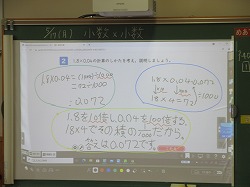 小数×小数
めあ
2 1.8×0.04の計算のしかたを考え、説明しましょう。
1.8×0.04=
=72÷1000
=0.072
1.8×0.04=0.072
18×4=72
÷1000
1.8を10倍し0.04を100倍する。
18×4でその積の 1/1000 だから、
答えは0.072です。